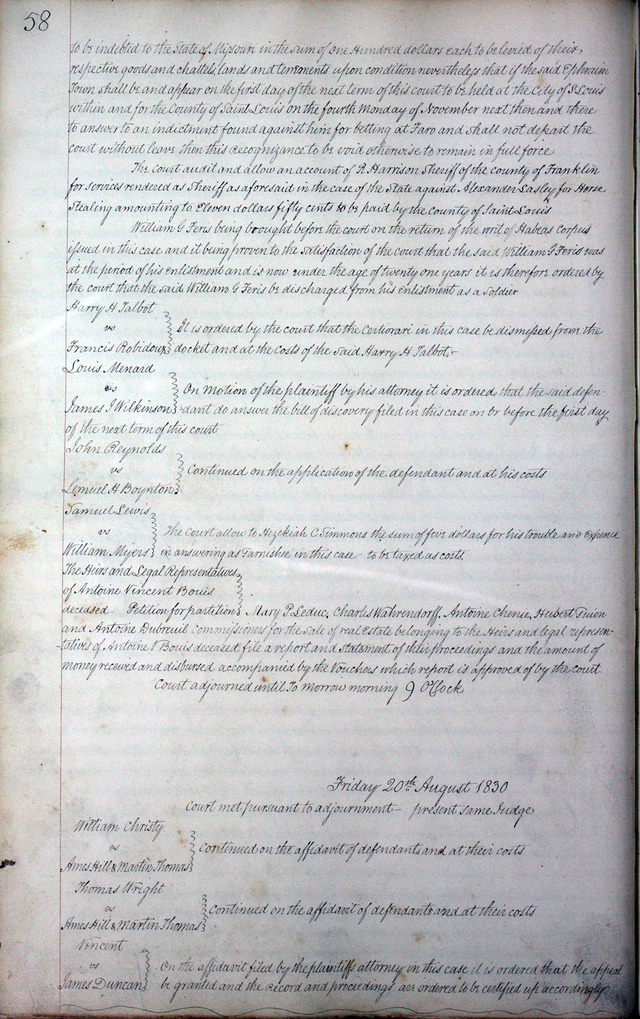 58
to be indebted to the State of Missouri in the sum of One Hundred dollars each to be levied of their
respective goods and chattels, lands and tenements upon condition nevertheless that if the said Ephraim
Town shall be and appear on the first day of the next term of this court to be held at the City of St Louis
within and for the County of Saint Louis on the fourth Monday of November next then and there
to answer to an indictment found against him for betting at Faro and shall not depart the
court without leave then this Recognizance to be void otherwise to remain in full force
The Court audit and allow an account of R. Harrison Sheriff of the county of Franklin
for services rendered as Sheriff as aforesaid in the case of the State against Alexander Lasley for Horse
Stealing amounting to Eleven dollars fifty cents to be paid by the county of Saint Louis
William G Feris being brought before the court on the return of the writ of Habeas corpus
issued in this case and it being proven to the satisfaction of the court that the said William G Feris was
at the period of his enlistment and is now under the age of twenty one years it is therefore ordered by
the court that the said William G Feris be discharged from his enlistment as a Soldier
Harry H Talbot
vs
It is ordered by the court that the Certiorari in this case be dismissed from the
Francis Robidoux docket and at the costs of the Said Harry H Talbot
Louis Menard
vs
On Motion of the plaintiff by his attorney it is ordered that the said defen-
James J Wilkinson dant do answer the bill of discovery filed in this case on or before the first day
of the next term of this court
John Reynolds
vs Continued on the application of the defendant and at his costs
Lemuel H Boynton
Samuel Lewis
vs The Court allow to Hezekiah C Simmons the sum of five dollars for his trouble and Expence
William Myers in answering as Garnishee in this case to be taxed as costs
The Heirs and Legal Representatives
of Antoine Vincent Bouis
deceased Petition for partition Mary P Leduc, Charles Wahrendorff, Antoine Chenie, Hubert Guion
and Antoine Dubreuil commissioners for the sale of real estate belonging to the Heirs and legal represen-
tatives of Antoine V Bouis deceased file a report and statement of their proceedings and the amount of
money received and disbursed accompanied by the Vouchers which report is approved of by the court
Court adjourned until To morrow morning 9 OClock
Friday 20th August 1830
Court met pursuant to adjournment - present same Judge
William Christy
vs Continued on the affidavit of defendants and at their costs
Ames Hill & Martin Thomas
Thomas Wright
vs Continued on the affidavit of defendants and at their costs
Ames Hill & Martin Thomas
Vincent
vs On the affidavit filed by the plaintiffs attorney in this case it is ordered that the appeal
James Duncan be granted and the record and proceedings are ordered to be certified up accordingly